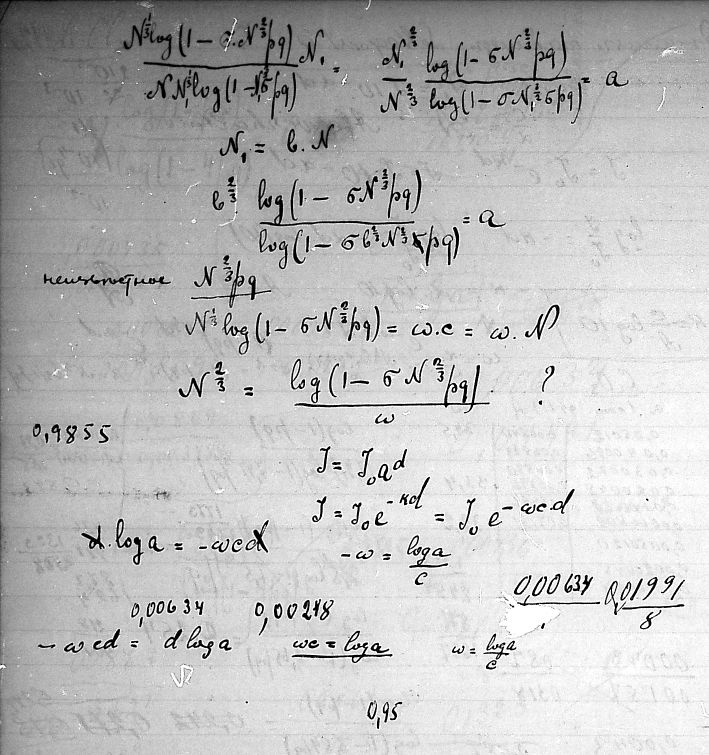 N^{1/3} log(1 − σ·N^{2/3}pq) / N N₁^{1/3} log(1 − N₁^{2/3}σpq) N₁ = N₁^{2/3}/N^{2/3} log(1 − σN^{2/3}pq)/log(1 − σN₁^{2/3}σpq) = a
N₁ = b. N
b^{2/3} log(1 − σN^{2/3}pq)/log(1 − σb^{2/3}N^{2/3}pq) = a
неизвестное N^{2/3}pq
N^{1/3} log(1 − σN^{2/3}pq) = ω.c = ω. N
N^{2/3} = log(1 − σN^{2/3}pq)/ω ?
0,9855
J = J₀a^d
J = J₀e^{−κd} = J₀ e^{−ωc.d}
d. log a = −ωcd −ω = log a/c
0,00634 0,01991/8
0,00634 0,00248
− ωcd = d log a ωc = log a ω = log a/c
0,95